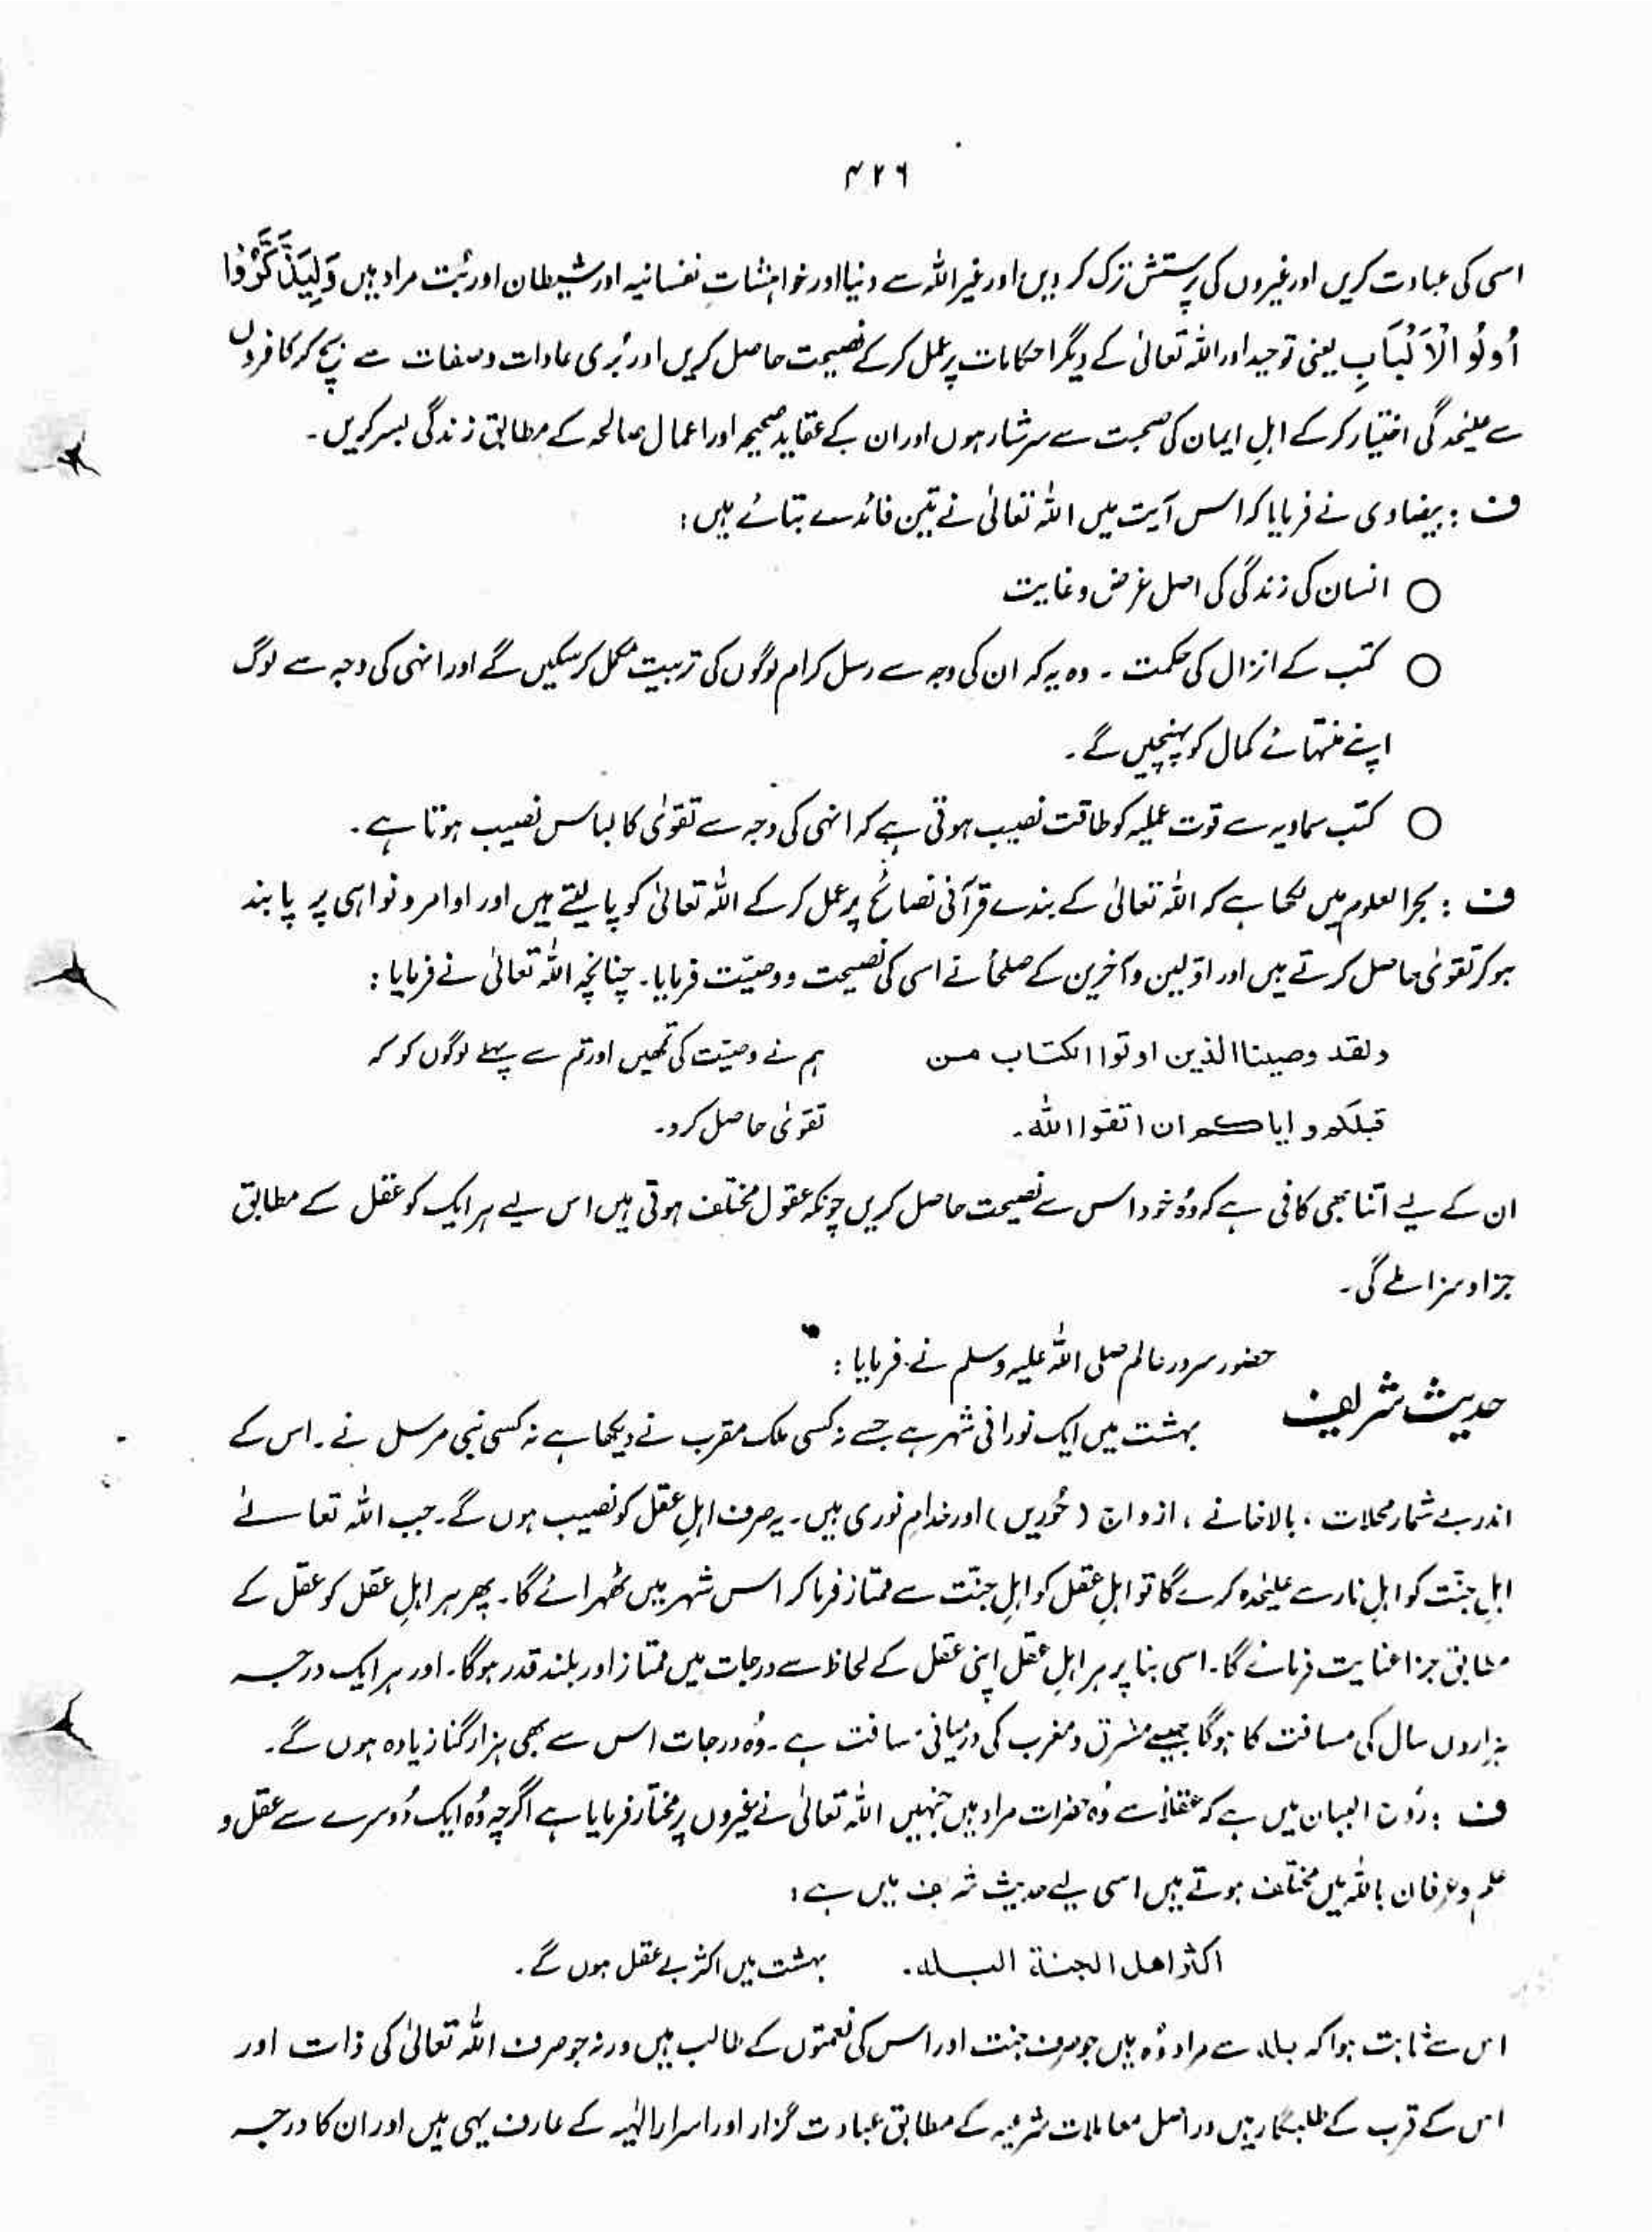 ۴۲۶
اسی کی عبادت کریں اور غیروں کی پرستش ترک کر دیں اور غیر اللہ سے دنیا اور خواہشاتِ نفسانیہ اور شیطان اور بُت مراد ہیں وَلِیَذَّکَّرَ
اُولُوا الْاَلْبَابِ یعنی توحید اور اللہ تعالیٰ کے دیگر احکامات پر عمل کر کے نصیحت حاصل کریں اور بُری عادات و صفات سے بچ کر کافروں
سے علیٰحدگی اختیار کر کے اہلِ ایمان کی صحبت سے سرشار ہوں اور ان کے عقایدِ صحیحہ اور اعمالِ صالحہ کے مطابق زندگی بسر کریں۔
ف : بیضاوی نے فرمایا کہ اس آیت میں اللہ تعالیٰ نے تین فائدے بتائے ہیں :
○ انسان کی زندگی کی اصل غرض و غایت
○ کتب کے انزال کی حکمت ۔ وہ یہ کہ ان کی وجہ سے رسل کرام لوگوں کی تربیت مکمل کر سکیں گے اور انہی کی وجہ سے لوگ
اپنے منتہائے کمال کو پہنچیں گے۔
○ کتب سماویہ سے قوت عملیہ کو طاقت نصیب ہوتی ہے کہ انہی کی وجہ سے تقویٰ کا لباس نصیب ہوتا ہے۔
ف : بحر العلوم میں لکھا ہے کہ اللہ تعالیٰ کے بندے قرآنی نصائح پر عمل کر کے اللہ تعالیٰ کو پا لیتے ہیں اور اوامر و نواہی پر پابند
ہو کر تقویٰ حاصل کرتے ہیں اور اولین و آخرین کے صلحاء نے اسی کی نصیحت و وصیّت فرمایا۔ چنانچہ اللہ تعالیٰ نے فرمایا :
ولقد وصینا الذین اوتوا الکتاب من ہم نے وصیّت کی تمھیں اور تم سے پہلے لوگوں کو کہ
قبلکم و ایاکم ان اتقوا اللہ۔ تقویٰ حاصل کرو۔
ان کے لیے اتنا بھی کافی ہے کہ وُہ خود اس سے نصیحت حاصل کریں چونکہ عقول مختلف ہوتی ہیں اس لیے ہر ایک کو عقل کے مطابق
جزا و سزا ملے گی۔
حدیث شریف حضور سرور عالم صلی اللہ علیہ وسلم نے فرمایا :
بہشت میں ایک نورانی شہر ہے جسے نہ کسی ملک مقرب نے دیکھا ہے نہ کسی نبی مرسل نے۔ اس کے
اندر بے شمار محلات ، بالاخانے ، ازواج (حُوریں) اور خدام نوری ہیں۔ یہ صرف اہلِ عقل کو نصیب ہوں گے۔ جب اللہ تعالےٰ
اہلِ جنّت کو اہلِ نار سے علیٰحدہ کرے گا تو اہلِ عقل کو اہلِ جنّت سے ممتاز فرما کر اس شہر میں ٹھہرائے گا۔ پھر ہر اہلِ عقل کو عقل کے
مطابق جزا عنایت فرمائے گا۔ اسی بنا پر ہر اہلِ عقل اپنی عقل کے لحاظ سے درجات میں ممتاز اور بلند قدر ہوگا۔ اور ہر ایک درجہ
ہزاروں سال کی مسافت کا ہوگا جیسے مشرق و مغرب کی درمیانی مسافت ہے۔ وُہ درجات اس سے بھی ہزار گنا زیادہ ہوں گے۔
ف : رُوح البیان میں ہے کہ عقلاء سے وُہ حضرات مراد ہیں جنہیں اللہ تعالیٰ نے غیروں پر مختار فرمایا ہے اگرچہ وُہ ایک دُوسرے سے عقل و
علم و عرفان باللہ میں مختلف ہوتے ہیں اسی لیے حدیث شریف میں ہے :
اکثر اھل الجنۃ البلہ۔ بہشت میں اکثر بے عقل ہوں گے۔
اس سے ثابت ہوا کہ بلہ سے مراد وُہ ہیں جو صرف جنت اور اس کی نعمتوں کے طالب ہیں ورنہ جو صرف اللہ تعالیٰ کی ذات اور
اس کے قرب کے طلبگار ہیں دراصل معاملات شرعیہ کے مطابق عبادت گزار اور اسرارِ الٰہیہ کے عارف یہی ہیں اور ان کا درجہ